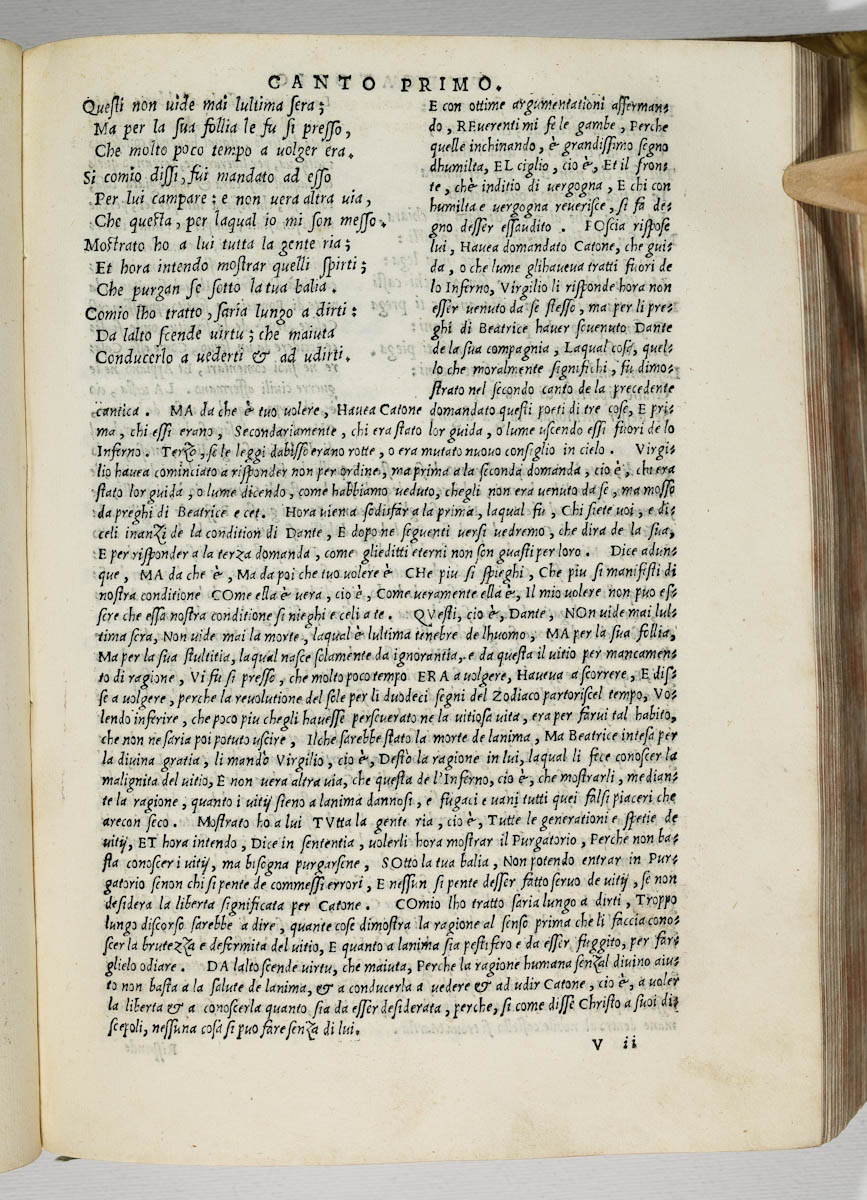 CANTO PRIMO.
Questi non uide mai lultima sera;
Ma per la sua follia le fu si presso,
Che molto poco tempo a uolger era.
Si comio dissi, fui mandato ad esso
Per lui campare: e non uera altra uia,
Che questa, per laqual io mi son messo.
Mostrato ho a lui tutta la gente ria;
Et hora intendo mostrar quelli spirti;
Che purgan se sotto la tua balia.
Comio lho tratto, saria lungo a dirti:
Da lalto scende uirtu; che maiuta
Conducerlo a uederti & ad udirti.
E con ottime argumentationi afferman⸗
do, REuerenti mi fe le gambe, Perche
quelle inchinando, è grandissimo segno
dhumilta, EL ciglio, cio è, Et il fron⸗
te, chè inditio di uergogna, E chi con
humilta e uergogna reuerisce, si fa de⸗
gno desser essaudito. POscia rispose
lui, Hauea domandato Catone, che gui⸗
da, o che lume glihaueua tratti fuori de
lo Inferno, Virgilio li risponde hora non
esser uenuto da se stesso, ma per li pre⸗
ghi di Beatrice hauer souenuto Dante
de la sua compagnia, Laqual cosa, quel⸗
lo che moralmente significhi, fu dimo⸗
strato nel secondo canto de la precedente
cantica. MA da che è tuo uolere, Hauea Catone domandato questi poeti di tre cose, E pri⸗
ma, chi essi erano, Secondariamente, chi era stato lor guida, o lume uscendo essi fuori de lo
Inferno. Terzo, se le leggi dabisso erano rotte, o era mutato nuouo consiglio in cielo. Virgi⸗
lio hauea cominciato a risponder non per ordine, ma prima a la seconda domanda, cio è, chi era
stato lor guida, o lume dicendo, come habbiamo ueduto, chegli non era uenuto da se, ma mosso
da preghi di Beatrice e cet. Hora vien a sodisfar a la prima, laqual fu, Chi siete uoi, e di⸗
celi inanzi de la condition di Dante, E dopo ne seguenti uersi uedremo, che dira de la sua,
E per risponder a la terza domanda, come glieditti eterni non son guasti per loro. Dice adun⸗
que, MA da che è, Ma da poi che tuo uolere è CHe piu si spieghi, Che piu si manifesti di
nostra conditione COme ella è uera, cio è, Come ueramente ella è, Il mio uolere non puo es⸗
sere che essa nostra conditione si nieghi e celi a te. QVesti, cio è, Dante, NOn uide mai lul⸗
tima sera, Non uide mai la morte, laqual è lultima tenebre de lhuomo, MA per la sua follia,
Ma per la sua stultitia, laqual nasce solamente da ignorantia, e da questa il uitio per mancamen⸗
to di ragione, Vi fu si presso, che molto poco tempo ERA a uolgere, Haueua a scorrere, E dis⸗
se a uolgere, perche la reuolutione del sole per li duodeci segni del Zodiaco partoriscel tempo, Vo⸗
lendo inferire, che poco piu chegli hauesse perseuerato ne la uitiosa uita, era per farui tal habito,
che non ne saria poi potuto uscire, Ilche sarebbe stato la morte de lanima, Ma Beatrice intesa per
la diuina gratia, li mando Virgilio, cio è, Desto la ragione in lui, laqual li fece conoscer la
malignita del uitio, E non uera altra uia, che questa de l'Inferno, cio è, che mostrarli, median⸗
te la ragione, quanto i uitij sieno a lanima dannosi, e fugaci e uani tutti quei falsi piaceri che
arecon seco. Mostrato ho a lui TVtta la gente ria, cio è, Tutte le generationi e spetie de
uitij, ET hora intendo, Dice in sententia, uolerli hora mostrar il Purgatorio, Perche non ba⸗
sta conoscer i uitij, ma bisogna purgarsene, SOtto la tua balia, Non potendo entrar in Pur⸗
gatorio senon chi si pente de commessi errori, E nessun si pente desser fatto seruo de uitij, se non
desidera la liberta significata per Catone. COmio lho tratto saria lungo a dirti, Troppo
lungo discorso sarebbe a dire, quante cose dimostra la ragione al senso prima che li faccia cono⸗
scer la brutezza e deformita del uitio, E quanto a lanima sia pestifero e da esser fuggito, per far⸗
glielo odiare. DA lalto scende uirtu, che maiuta, Perche la ragione humana senzal diuino aiu⸗
to non basta a la salute de lanima, & a conducerla a uedere & ad udir Catone, cio è, a uoler
la liberta & a conoscerla quanto sia da esser desiderata, perche, si come disse Christo a suoi di⸗
scepoli, nessuna cosa si puo fare senza di lui.
V ii